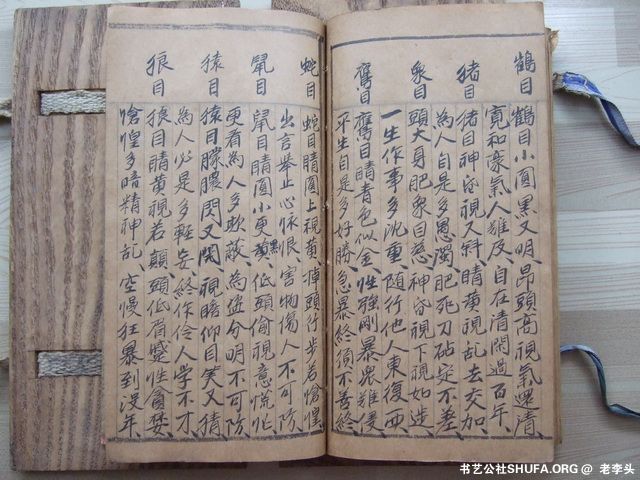 鶴目 鶴目小圓黑又明、昂頭高視氣還清、
寬和豪氣人難及、自在清閑過百年、
猪目 猪目神昏視又斜、睛黃視乱去交加、
為人自是多愚濁、肥死刀砧定不差、
象目 頭大身肥象目慈、神昏視下視如迷、
一生作事多沈重、随行他人東復西、
鷹目 鷹目睛青色似金、性強剛暴衆難侵、
平生自是多好勝、急暴終須不善終、
蛇目 蛇目睛圓上視黃、掉頭行步若愴惶、
出言舉止心咏恨、害物傷人不可防、
鼠目 鼠目睛圓小更黃黑、低頭偷視意慌忙、
更看為人多欺蔽、為盗分明不可防、
猿目 猿目朦朧閃又開、視瞻仰目笑又猜、
為人必是多輕妄、終作伶人學不才
狼目 狼目睛黃視若顛、頭低眉蹙性貪婪、
愴惶多暗精神乱、空慢狂暴到没年、
书艺公社SHUFA.ORG @ 老李头